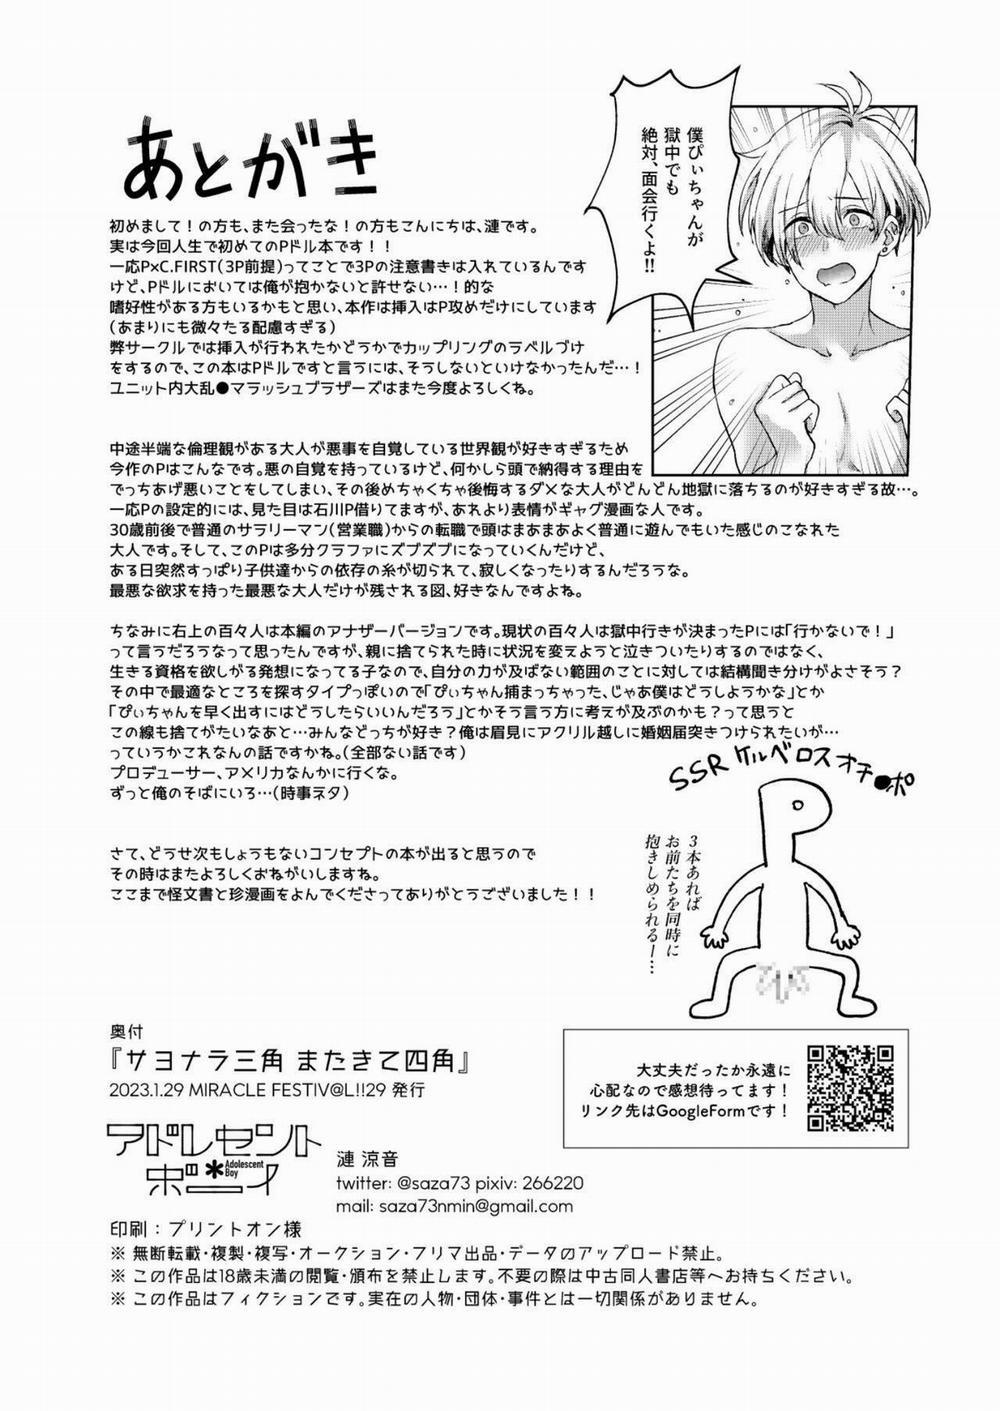 あとがき
僕ぴぃちゃんが
獄中でも
絶対、面会行くよ!!
初めまして!の方も、また会ったな!の方もこんにちは、漣です。
実は今回人生で初めてのPドル本です!!
一応P×C.FIRST(3P前提)ってことで3Pの注意書きは入れているんです
けど、Pドルにおいては俺が抱かないと許せない…!的な
嗜好性がある方もいるかもと思い、本作は挿入はP攻めだけにしています
(あまりにも微々たる配慮すぎる)
弊サークルでは挿入が行われたかどうかでカップリングのラベルづけ
をするので、この本はPドルですと言うには、そうしないといけなかったんだ…!
ユニット内大乱●マラッシュブラザーズはまた今度よろしくね。
中途半端な倫理観がある大人が悪事を自覚している世界観が好きすぎるため
今作のPはこんなです。悪の自覚を持っているけど、何かしら頭で納得する理由を
でっちあげ悪いことをしてしまい、その後めちゃくちゃ後悔するダメな大人がどんどん地獄に落ちるのが好きすぎる故…。
一応Pの設定的には、見た目は石川P借りてますが、あれより表情がギャグ漫画な人です。
30歳前後で普通のサラリーマン(営業職)からの転職で頭はまあまあよく普通に遊んでもいた感じのこなれた
大人です。そして、このPは多分クラファにズブズブになっていくんだけど、
ある日突然すっぱり子供達からの依存の糸が切られて、寂しくなったりするんだろうな。
最悪な欲求を持った最悪な大人だけが残される図、好きなんですよね。
ちなみに右上の百々人は本編のアナザーバージョンです。現状の百々人は獄中行きが決まったPには「行かないで!」
って言うだろうなって思ったんですが、親に捨てられた時に状況を変えようと泣きついたりするのではなく、
生きる資格を欲しがる発想になってる子なので、自分の力が及ばない範囲のことに対しては結構聞き分けがよさそう?
その中で最適なところを探すタイプっぽいので「ぴぃちゃん捕まっちゃった、じゃあ僕はどうしようかな」とか
「ぴぃちゃんを早く出すにはどうしたらいいんだろう」とかそう言う方に考えが及ぶのかも?って思うと
この線も捨てがたいなあと…みんなどっちが好き?俺は眉見にアクリル越しに婚姻届突きつけられたいが…
っていうかこれなんの話ですかね。(全部ない話です)
プロデューサー、アメリカなんかに行くな。
ずっと俺のそばにいろ…(時事ネタ)
さて、どうせ次もしょうもないコンセプトの本が出ると思うので
その時はまたよろしくおねがいしますね。
ここまで怪文書と珍漫画をよんでくださってありがとうございました!!
SSRケルベロスオチ●ポ
P
3本あれば
お前たちを同時に
抱きしめられるー…
奥付
『サヨナラ三角 またきて四角』
2023.1.29 MIRACLE FESTIV@L!!29 発行
アドレセント
ボーイ
Adolescent
Boy
漣 涼音
twitter: @saza73 pixiv: 266220
mail: saza73nmin@gmail.com
大丈夫だったか永遠に
心配なので感想待ってます!
リンク先はGoogleFormです!
印刷:プリントオン様
※ 無断転載・複製・複写・オークション・フリマ出品・データのアップロード禁止。
※ この作品は18歳未満の閲覧・頒布を禁止します。不要の際は中古同人書店等へお持ちください。
※ この作品はフィクションです。実在の人物・団体・事件とは一切関係がありません。